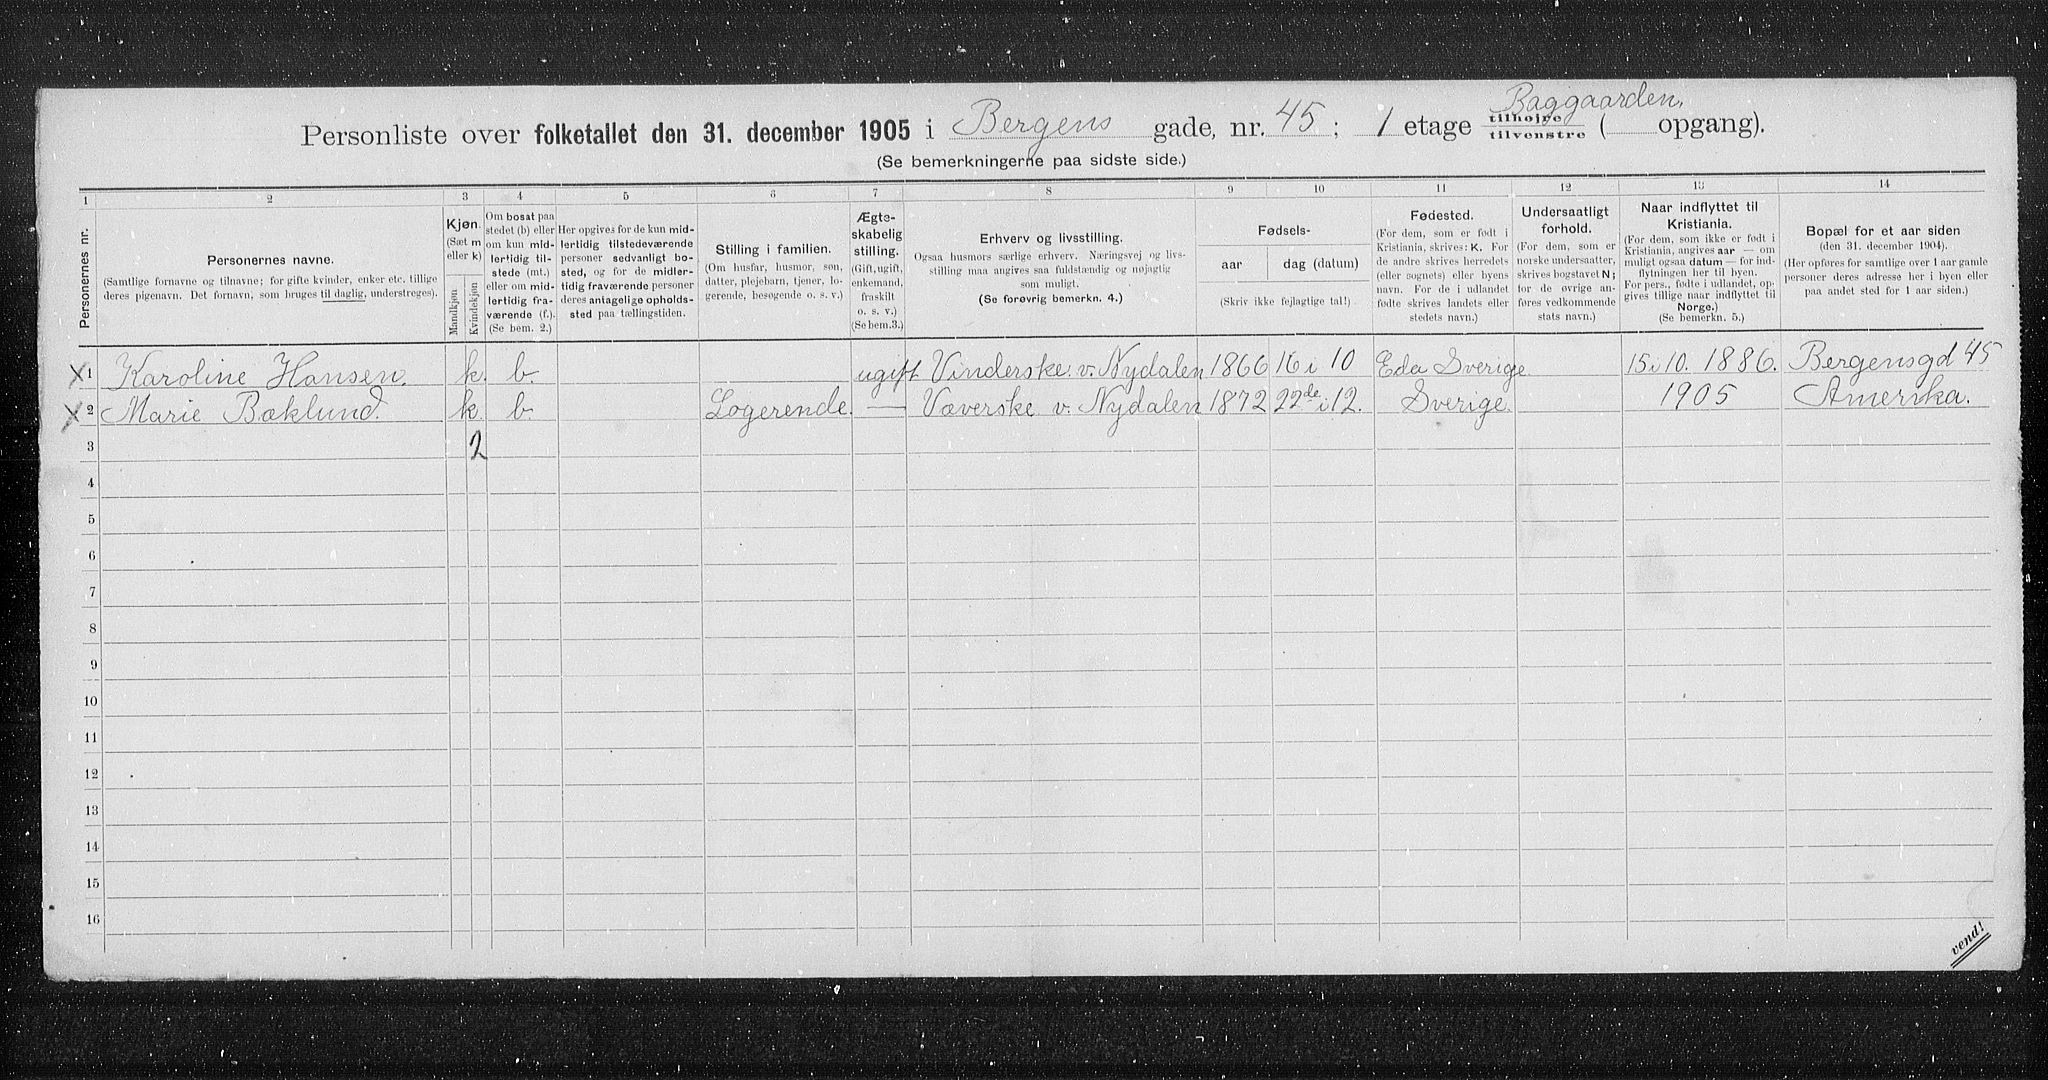 Baggaarden.
Personliste over folketallet den 31. december 1905 i Bergens gade, nr. 45; 1 etage tilhøjre tilvenstre ( opgang).
(Se bemerkningerne paa sidste side.)
1 2 3 4 5 6 7 8 9 10 11 12 13 14
Personernes nr.
Personernes navne.
(Samtlige fornavne og tilnavne; for gifte kvinder, enker etc. tillige
deres pigenavn. Det fornavn, som bruges til daglig, understreges).
Kjøn.
(Sæt m
eller k)
Mandkjøn
Kvindekjøn
Om bosat paa
stedet (b) eller
om kun mid-
lertidig til-
stede (mt.)
eller om mid-
lertidig fra-
værende (f.).
(Se bem. 2.)
Her opgives for de kun mid-
lertidig tilstedeværende
personer sedvanligt bo-
sted, og for de midler-
tidig fraværende personer
deres antagelige opholds-
sted paa tællingstiden.
Stilling i familien.
(Om husfar, husmor, søn,
datter, plejebarn, tjener, lo-
gerende, besøgende o. s. v.)
Ægte-
skabelig
stilling.
(Gift, ugift,
enkemand,
fraskilt
o. s. v.)
(Se bem.3.)
Erhverv og livsstilling.
Ogsaa husmors særlige erhverv. Næringsvej og livs-
stilling maa angives saa fuldstændig og nøjagtig
som muligt.
(Se forøvrig bemerkn. 4.)
Fødsels-
aar dag (datum)
(Skriv ikke fejlagtige tal!).
Fødested.
(For dem, som er født i
Kristiania, skrives: K. For
de andre skrives herredets
(eller sognets) eller byens
navn. For de i udlandet
fødte skrives landets eller
stedets navn.)
Undersaatligt
forhold.
(For dem, som er
norske undersaatter,
skrives bogstavet N;
for de øvrige an-
føres vedkommende
stats navn.)
Naar indflyttet til
Kristiania.
(For dem, som ikke er født i
Kristiania, angives aar — om
muligt ogsaa datum — for ind-
flytningen her til byen.
For pers., fødte i udlandet, op-
gives tillige naar indflyttet til
Norge.)
(Se bemerkn. 5.)
Bopæl for et aar siden
(den 31. december 1904).
(Her opføres for samtlige over 1 aar gamle
personer deres adresse her i byen eller
paa andet sted for 1 aar siden.)
X 1 Karoline Hansen. k. b. ugift Vinderske v. Nydalen 1866 16 i 10 Eda Sverige 15 i 10. 1886. Bergensgd 45
X 2 Marie Bæklund. k. b. Logerende. — Væverske v. Nydalen 1872 22de i 12. Sverige. 1905 Amerika.
3 2
4
5
6
7
8
9
10
11
12
13
14
15
16
vend!